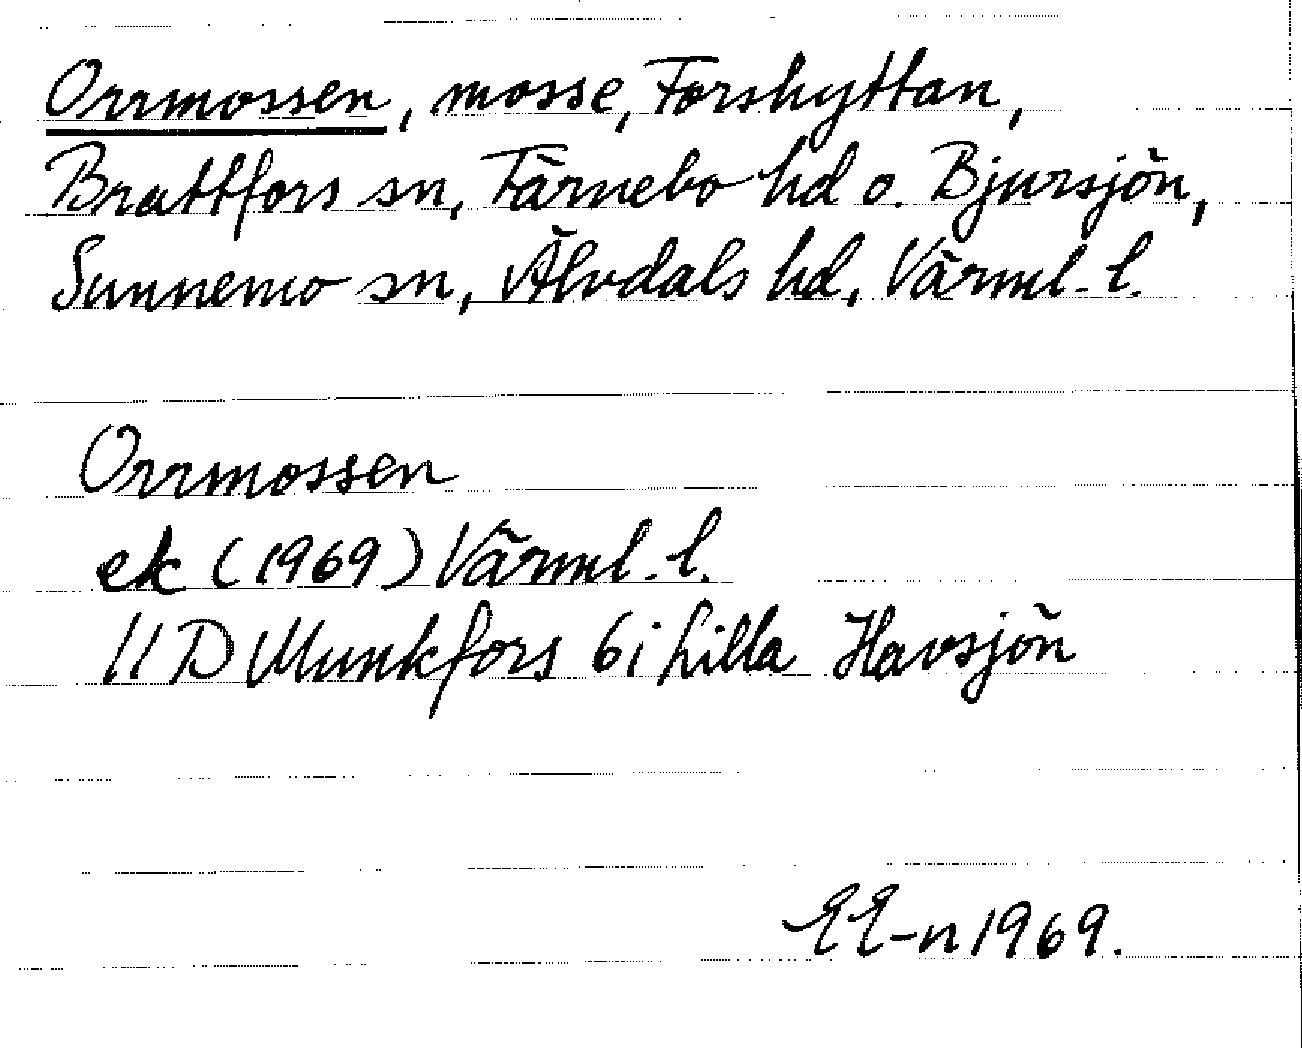 Orrmossen, mosse, Forshyttan,
Brattfors sn, Färnebo hd o. Bjursjön,
Sunnemo sn, Älvdals hd, Värml. l.
Orrmossen
ek (1969) Värml. l.
11 D Munkfors 6i Lilla Havsjön
EE-n 1969.